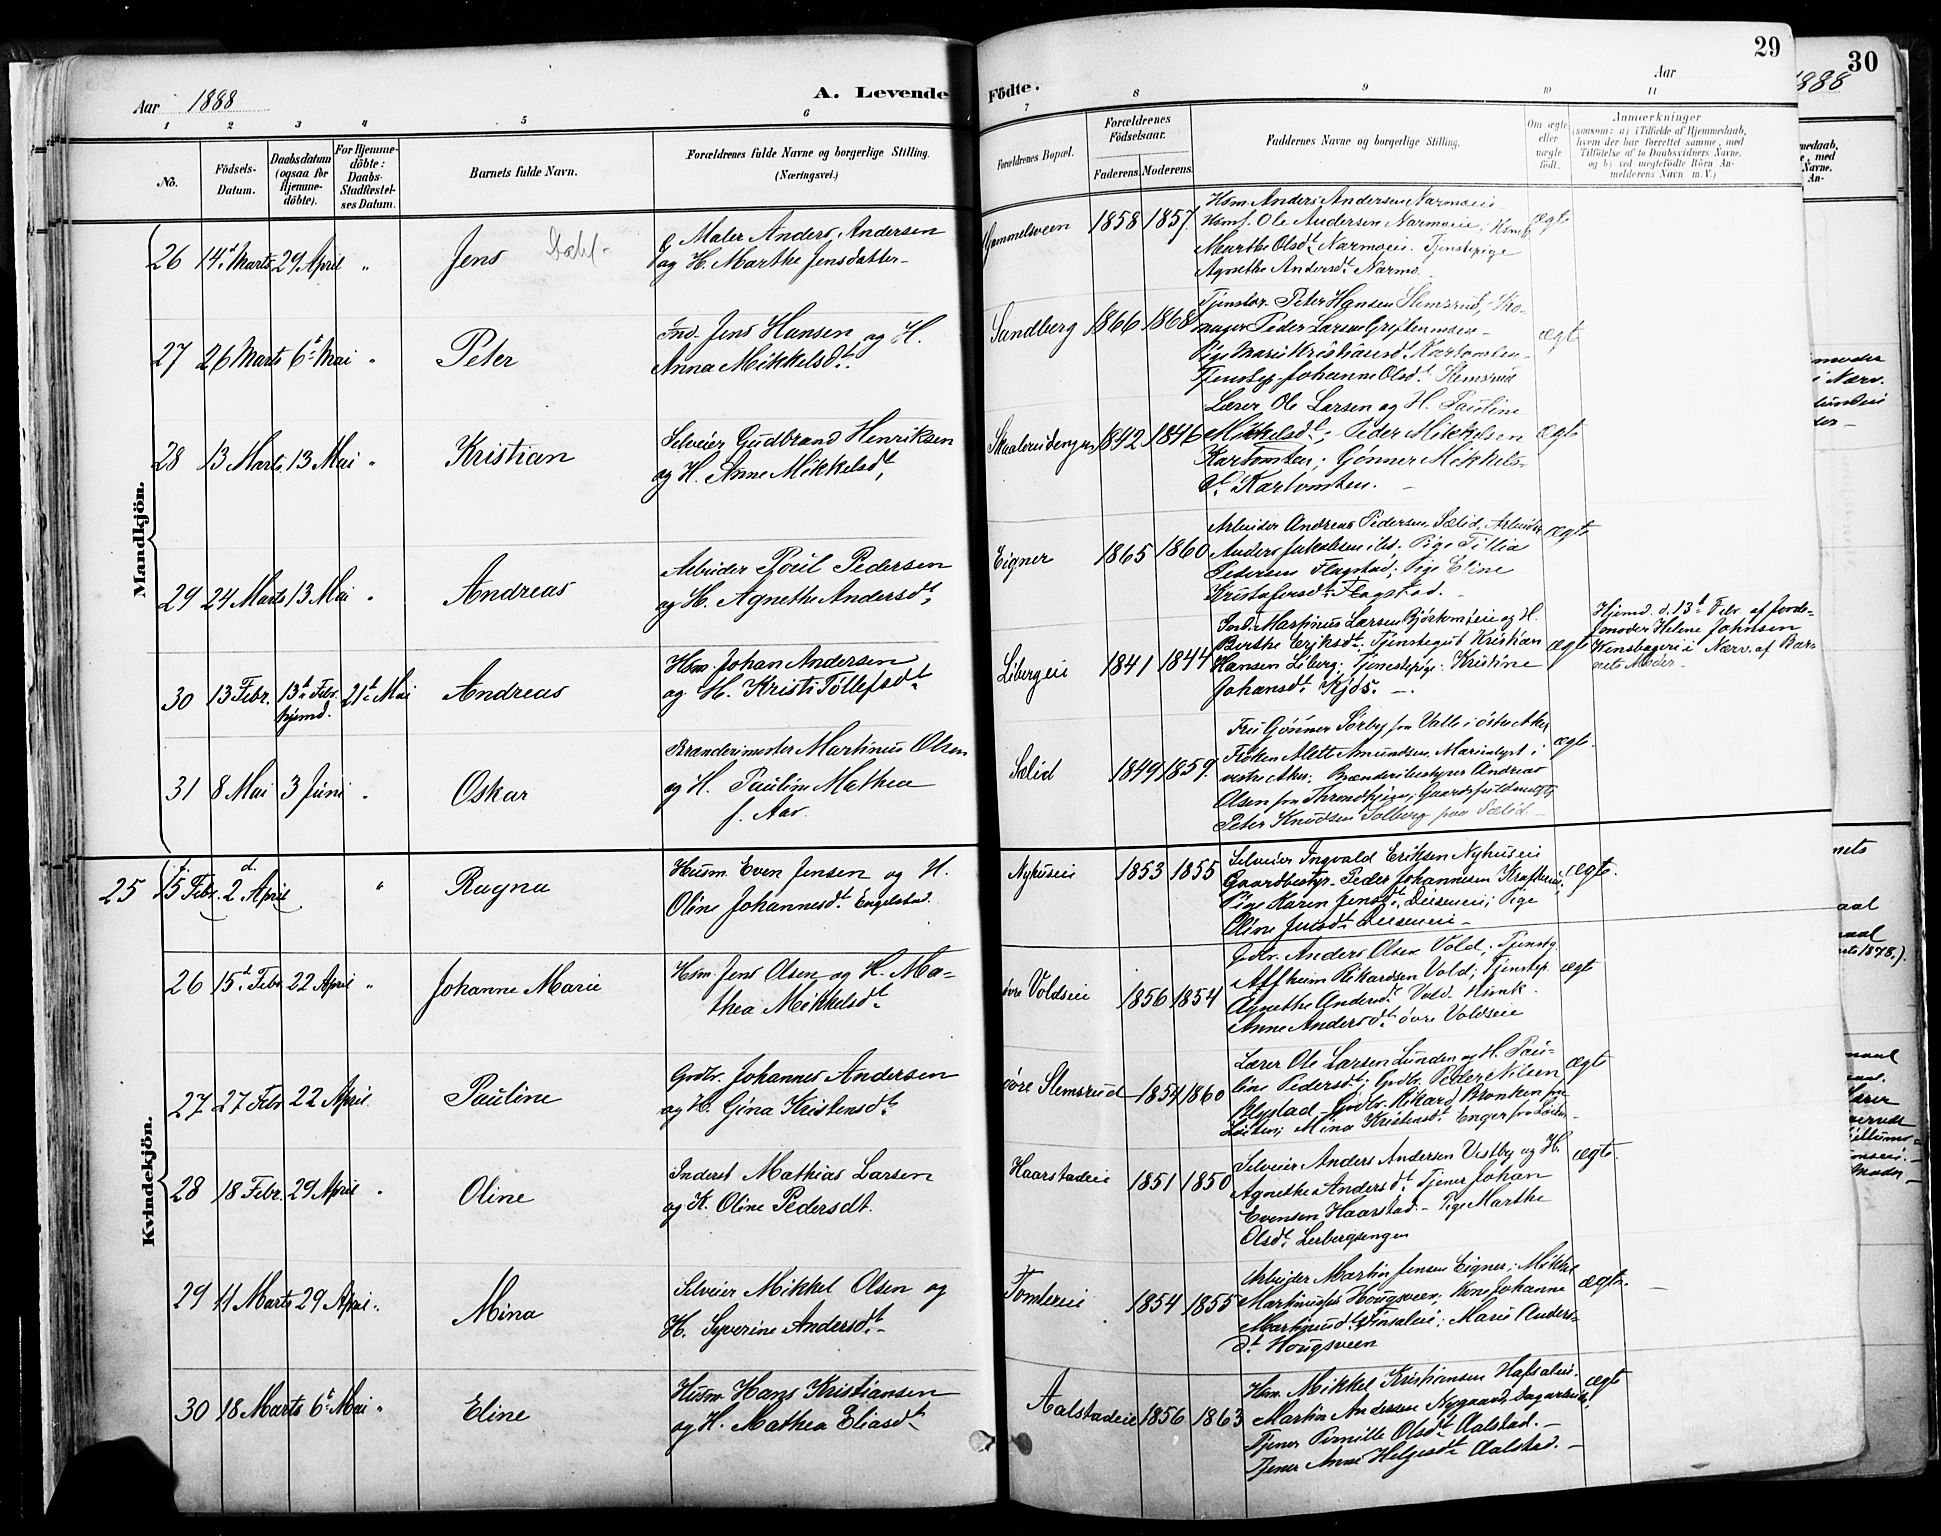 29
30
Aar 1888
A. Levende Födte.
Aar
1888
1 2 3 4 5 6 7 8 9 10 11
No.
Födsels-Datum.
Daabsdatum (ogsaa for Hjemmedöbte).
For Hjemmedöbte: Daabs-Stadfestelses Datum.
Barnets fulde Navn.
Forældrenes fulde Navne og borgerlige Stilling. (Næringsvei.)
Forældrenes Bopæl.
Forældrenes Födselsaar.
Faderens. Moderens.
Faddernes Navne og borgerlige Stilling.
Om ægte eller uægte født.
Anmærkninger
(saasom: a) i Tilfælde af Hjemmedaab, hvem der har forrettet samme, med Tilföielse af to Daabsvidners Navne, og b) ved uægtefödte Börn Anmelderens Navn m. V.)
Mandkjön.
26 14d Marts 29 April " Jens Dahl-
G Maler Anders Andersen
og H. Marthe Jensdatter-
Gammelsveen 1858 1857
Hsm. Anders Andersen Narmoeie
Hsmf. Ole Andersen Narmoeie; Hsmk.
Marthe Olsdt Narmoeie. Tjenstepige
Agnethe Andersdt Narmo.
ægte
27 26 Marts 6t Mai " Peter
Ind. Jens Hansen og H.
Anna Mikkelsdt.
Sandberg 1866 1868
Tjenstkr. Peter Hansen Slemsrud,
Peder Larsen
Pige Marie Kristiansdt Kartomten
Tjenstep. Johanne Olsdt Slemsrud
ægte
28 13 Marts 13 Mai " Kristian
Selveier Gudbrand Henriksen
og H. Anne Mikkelsdt,
Skaalerudengen 1842 1846
Lærer Ole Larsen og H. Pauline
Mikkelsdt; Peder Mikkelsen
Kartomten; Gunner Mikkels-
dt Kartomten.
ægte
29 24 Marts 13 Mai " Andreas
Arbeider Poul Pedersen
og H. Agnethe Andersdt,
Eigner 1865 1860
Arbeider Andreas Pedersen Sælid, Arbeider
Anders Jakobsen ibd. Pige Tilia
Pedersen Flagstad; Pige Eline
Kristofersdt Flagstad.
ægte
30 13 Febr. 13t Febr. hjemd. 21t Mai Andreas
Hsm. Johan Andersen
og H. Kristi Tollefsdt
Libergeie 1841 1844
Ind. Martinus Larsen Bjørkomteie og H.
Berthe Eriksdt; Tjenstegut Kristian
Hansen Liberg; Tjenestepige Kristine
Johansdt Kjos.
ægte
Hjemd. d. 13t Febr. af Jorde-
moder Helene Johnsen
i Nærv. af Bar-
nets Moder
31 8 Mai 3 Juni " Oskar
Brænderimester Martinus Olsen
og H. Pauline Mathea
f. Aas.
Sælid 1849 1859
Fru Gunner Sørby fra Valle i østre Aker
Frøken Alette Amundsen Marienlyst i
vestre Aker; Brænderibestyrer Andreas
Olsen fra Throndhjem; Gaardsfuldmægtig
Peter Knudsen Solberg paa Sælid
ægte.
Kvindekjön.
25 15 Febr. 2d April " Ragna
Husm. Even Jensen og H.
Oline Johannesdt Engelstad.
Nyhuseie 1853 1855
Selveier Ingvald Eriksen Nyhuseie
Gaardbestyr. Peder Johannesen
Pige Karen Jensdt; Pige
Oline Jensdt
ægte.
26 15d Febr. 22 April " Johanne Marie
Hsm. Jens Olsen og H. Ma-
thea Mikkelsdt
øvre Voldseie 1856 1854
Gdbr. Anders Olsen Vold; Tjenstg.
Rikardsen Vold; Tjenstep.
Agnethe Andersdt Vold. Hsmk.
Anne Andersdt øvre Voldseie
ægte
27 27 Febr. 22 April Pauline
Gdbr. Johannes Andersen
og H. Gina Kristensdt
øvre Slemsrud 1854 1860
Lærer Ole Larsen Lunden og H. Pau-
line Pedersdt; Gdbr. Peder Nilsen
Gdbr. Rikard Bronken fra
Løiten; Mina Kristensdt Enger fra Løiten
ægte
28 18 Febr. 29 April " Oline
Inderst Mathias Larsen
og K. Oline Pedersdt.
Haarstadeie 1851 1850
Selveier Anders Andersen Vestby og H.
Agnethe Andersdt; Tjener Johan
Evensen Haarstad. Pige Marthe
Olsdt Lerbergsengen
ægte.
29 11 Marts 29 April " Mina
Selveier Mikkel Olsen og
H. Syverine Andersdt
Tomtereie 1854 1855
Arbeider Martin Jensen Eigner; Mikkel
Martinusen Hougsveen; Kone Johanne
Martinusdt Finsaleie; Marie Anders-
dt Hougsveen
ægte.
30 18 Marts 6t Mai " Eline
Husm. Hans Kristiansen
og H. Mathea Eliasdt
Aalstadeie 1856 1863
Hsm. Mikkel Kristiansen Hafsaleie.
Martin Andersen Nygaard, Dagarbeider.
Tjener Pernille Olsdt Aalstad.
Tjener Anne Helgesdt Aalstad.
ægte